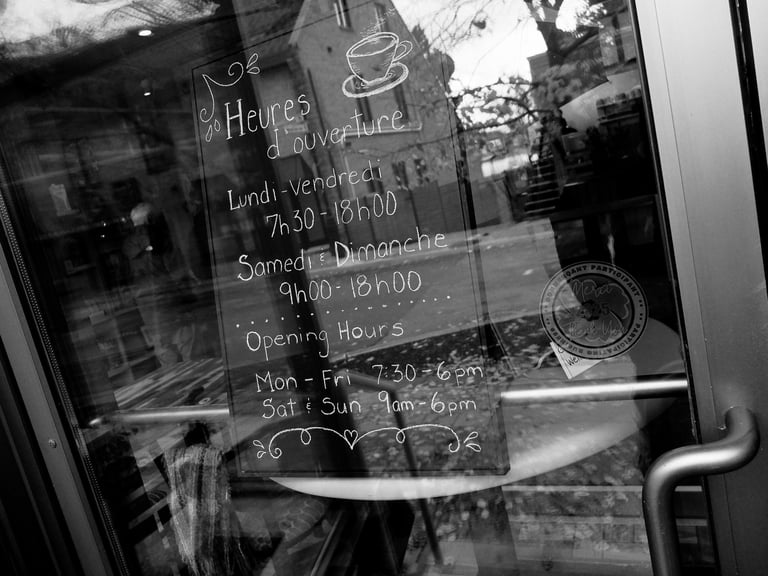 Heures
d'ouverture
Lundi-Vendredi
7h30-18h00
Samedi & Dimanche
9h00-18h00
Opening Hours
Mon - Fri 7:30-6pm
Sat & Sun 9am-6pm
PARTICIPANT
PARTICIPATING